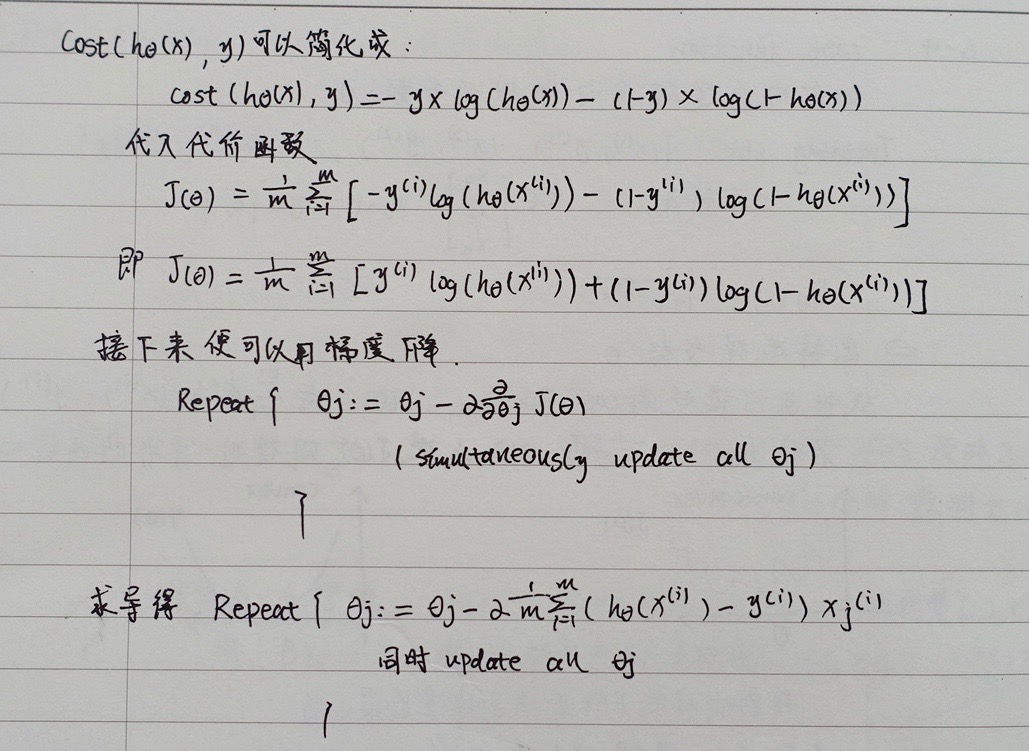 Cost(hθ(x), y)可以简化成：
cost(hθ(x), y) = - y × log(hθ(x)) - (1-y) × log(1-hθ(x))
代入代价函数
J(θ) = 1/m ∑_{i=1}^{m} [-y^(i) log(hθ(x^(i))) - (1-y^(i)) log(1-hθ(x^(i)))]
即 J(θ) = 1/m ∑_{i=1}^{m} [y^(i) log(hθ(x^(i))) + (1-y^(i)) log(1-hθ(x^(i)))]
接下来便可以用梯度下降.
Repeat { θj := θj - α ∂/∂θj J(θ)
(simultaneously update all θj)
}
求导得 Repeat { θj := θj - α 1/m ∑_{i=1}^{m} (hθ(x^(i)) - y^(i)) xj^(i)
同时 update all θj
}